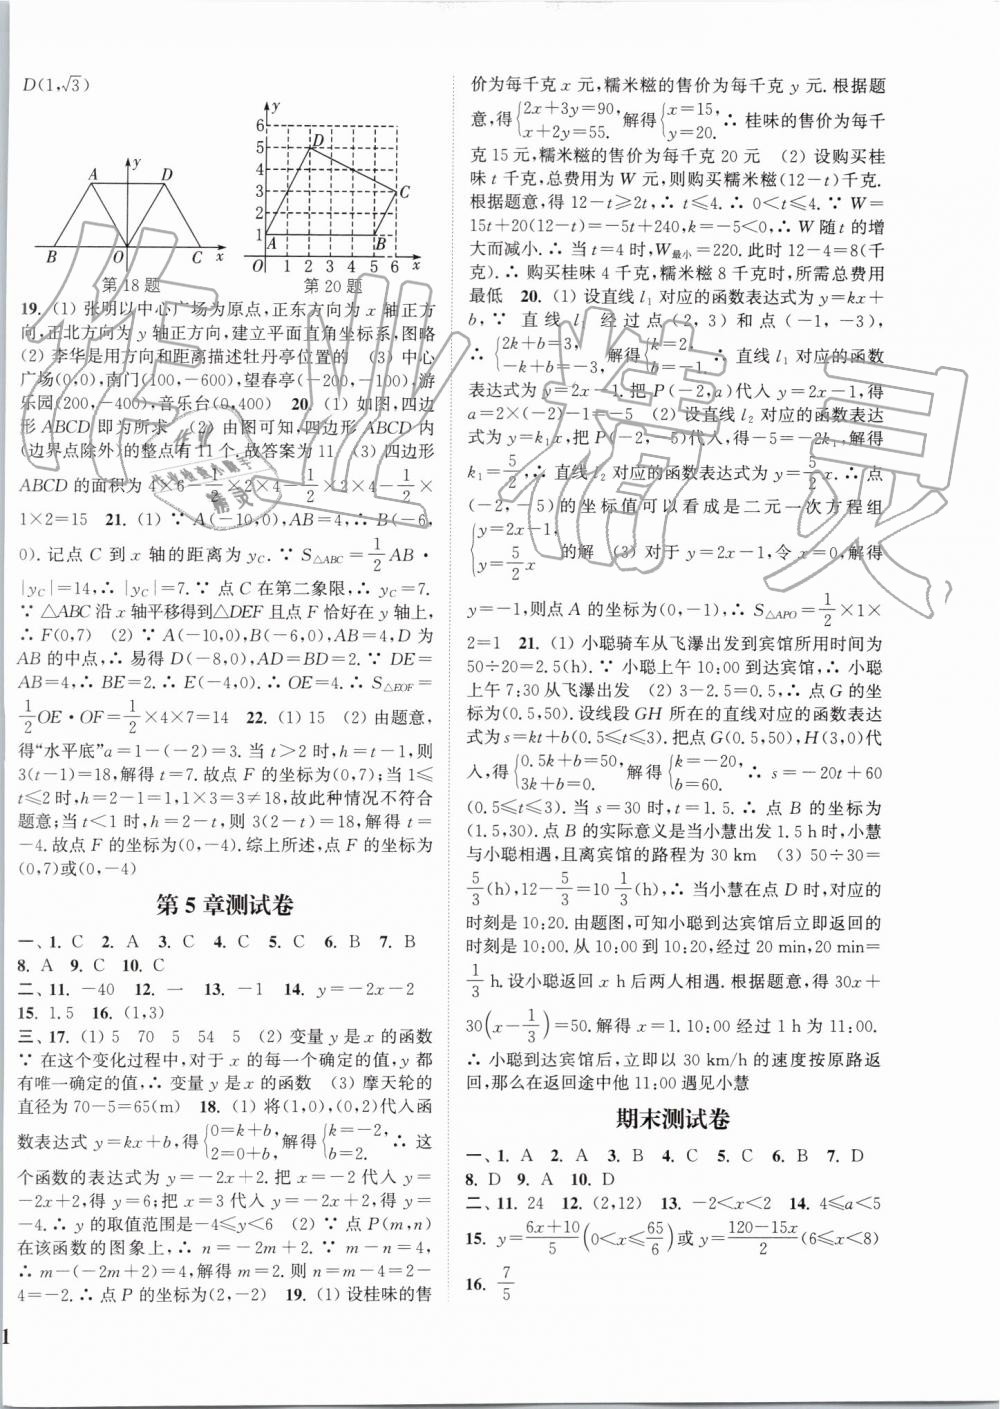 D(1,√3)
y
A D
B O C x
第18题
y
6
5
4
3
2
1
D
C
A B
O 1 2 3 4 5 6 x
第20题
19. (1) 张明以中心广场为原点,正东方向为 x 轴正方
向,正北方向为 y 轴正方向,建立平面直角坐标系,图略
(2) 李华是用方向和距离描述牡丹亭位置的 (3) 中心
广场(0,0),南门(100,-600),望春亭(-200,-100),游
乐园(200,-400),音乐台(0,400) 20. (1) 如图,四边
形 ABCD 即为所求 (2) 由图可知,四边形 ABCD 内
(边界点除外)的整点有 11 个,故答案为 11 (3) 四边形
ABCD 的面积为 4×6-1/2×2×4-1/2×2×4-1/2×
1×2=15 21. (1) ∵ A(-10,0),AB=4,∴ B(-6,
0). 记点 C 到 x 轴的距离为 y_C. ∵ S△ABC=1/2AB·
|y_C|=14,∴ |y_C|=7. ∵ 点 C 在第二象限,∴ y_C=7.
∵ △ABC 沿 x 轴平移得到△DEF 且点 F 恰好在 y 轴上,
∴ F(0,7) (2) ∵ A(-10,0),B(-6,0),AB=4,D 为
AB 的中点,∴ 易得 D(-8,0),AD=BD=2. ∵ DE=
AB=4,∴ BE=2. ∴ E(-4,0). ∴ OE=4. ∴ S△EOF=
1/2OE·OF=1/2×4×7=14 22. (1) 15 (2) 由题意,
得“水平底”a=1-(-2)=3. 当 t>2 时,h=t-1,则
3(t-1)=18,解得 t=7. 故点 F 的坐标为(0,7);当 1≤
t≤2 时,h=2-1=1,1×3=3≠18,故此种情况不符合
题意;当 t<1 时,h=2-t,则 3(2-t)=18,解得 t=
-4. 故点 F 的坐标为(0,-4). 综上所述,点 F 的坐标为
(0,7)或(0,-4)
第 5 章测试卷
一、1. C 2. A 3. C 4. C 5. C 6. B 7. B
8. A 9. C 10. C
二、11. -40 12. 一 13. -1 14. y=-2x-2
15. 1.5 16. (1,3)
三、17. (1) 5 70 5 54 5 (2) 变量 y 是 x 的函数
∵ 在这个变化过程中,对于 x 的每一个确定的值,y 都
有唯一确定的值,∴ 变量 y 是 x 的函数 (3) 摩天轮的
直径为 70-5=65(m) 18. (1) 将(1,0),(0,2)代入函
数表达式 y=kx+b,得{0=k+b, 2=0+b, 解得{k=-2, b=2. ∴ 这
个函数的表达式为 y=-2x+2. 把 x=-2 代入 y=
-2x+2,得 y=6;把 x=3 代入 y=-2x+2,得 y=
-4. ∴ y 的取值范围是-4≤y<6 (2) ∵ 点 P(m,n)
在该函数的图象上,∴ n=-2m+2. ∵ m-n=4,
∴ m-(-2m+2)=4,解得 m=2. 则 n=m-4=2-
4=-2. ∴ 点 P 的坐标为(2,-2) 19. (1) 设桂味的售
1
价为每千克 x 元,糯米糍的售价为每千克 y 元. 根据题
意,得{2x+3y=90, x+2y=55. 解得{x=15, y=20. ∴ 桂味的售价为每千
克 15 元,糯米糍的售价为每千克 20 元 (2) 设购买桂
味 t 千克,总费用为 W 元,则购买糯米糍(12-t)千克.
根据题意,得 12-t≥2t,∴ t≤4. ∴ 0<t≤4. ∵ W=
15t+20(12-t)=-5t+240,k=-5<0,∴ W 随 t 的增
大而减小. ∴ 当 t=4 时,W最小=220. 此时 12-4=8(千
克). ∴ 购买桂味 4 千克,糯米糍 8 千克时,所需总费用
最低 20. (1) 设直线 l₁ 对应的函数表达式为 y=kx+
b,∵ 直线 l₁ 经过点(2,3)和点(-1,-3),
∴ {2k+b=3, -k+b=-3, 解得{k=2, b=-1. ∴ 直线 l₁ 对应的函数
表达式为 y=2x-1. 把 P(-2,a)代入 y=2x-1,得
a=2×(-2)-1=-5 (2) 设直线 l₂ 对应的函数表达
式为 y=k₁x,把 P(-2,-5)代入,得-5=-2k₁,解得
k₁=5/2,∴ 直线 l₂ 对应的函数表达式为 y=5/2x. ∴ 点
(-2,-5)的坐标值可以看成是二元一次方程组
{y=2x-1, y=5/2x 的解 (3) 对于 y=2x-1,令 x=0,解得
y=-1,则点 A 的坐标为(0,-1),∴ S△APO=1/2×1×
2=1 21. (1) 小聪骑车从飞瀑出发到宾馆所用时间为
50÷20=2.5(h). ∵ 小聪上午 10:00 到达宾馆,∴ 小聪
上午 7:30 从飞瀑出发 (2) 3-2.5=0.5,∴ 点 G 的坐
标为(0.5,50). 设线段 GH 所在的直线对应的函数表达
式为 s=kt+b(0.5≤t≤3). 把点 G(0.5,50),H(3,0)代
入,得{0.5k+b=50, 3k+b=0. 解得{k=-20, b=60. ∴ s=-20t+60
(0.5≤t≤3). 当 s=30 时,t=1.5. ∴ 点 B 的坐标为
(1.5,30). 点 B 的实际意义是当小慧出发 1.5 h 时,小慧
与小聪相遇,且离宾馆的路程为 30 km (3) 50÷30=
5/3(h),12-5/3=10 1/3(h),∴ 当小慧在点 D 时,对应的
时刻是 10:20. 由题图,可知小聪到达宾馆后立即返回的
时刻是 10:00. 从 10:00 到 10:20,经过 20 min,20 min=
1/3 h. 设小聪返回 x h 后两人相遇. 根据题意,得 30x+
30(x-1/3)=50. 解得 x=1. 10:00 经过 1 h 为 11:00.
∴ 小聪到达宾馆后,立即以 30 km/h 的速度按原路返
回,那么在返回途中他 11:00 遇见小慧
期末测试卷
一、1. A 2. A 3. B 4. C 5. C 6. B 7. D
8. D 9. A 10. D
二、11. 24 12. (2,12) 13. -2<x<2 14. 4≤a<5
15. y=(6x+10)/5(0<x≤65/6)或 y=(120-15x)/2(6≤x<8)
16. 7/5
作业精灵